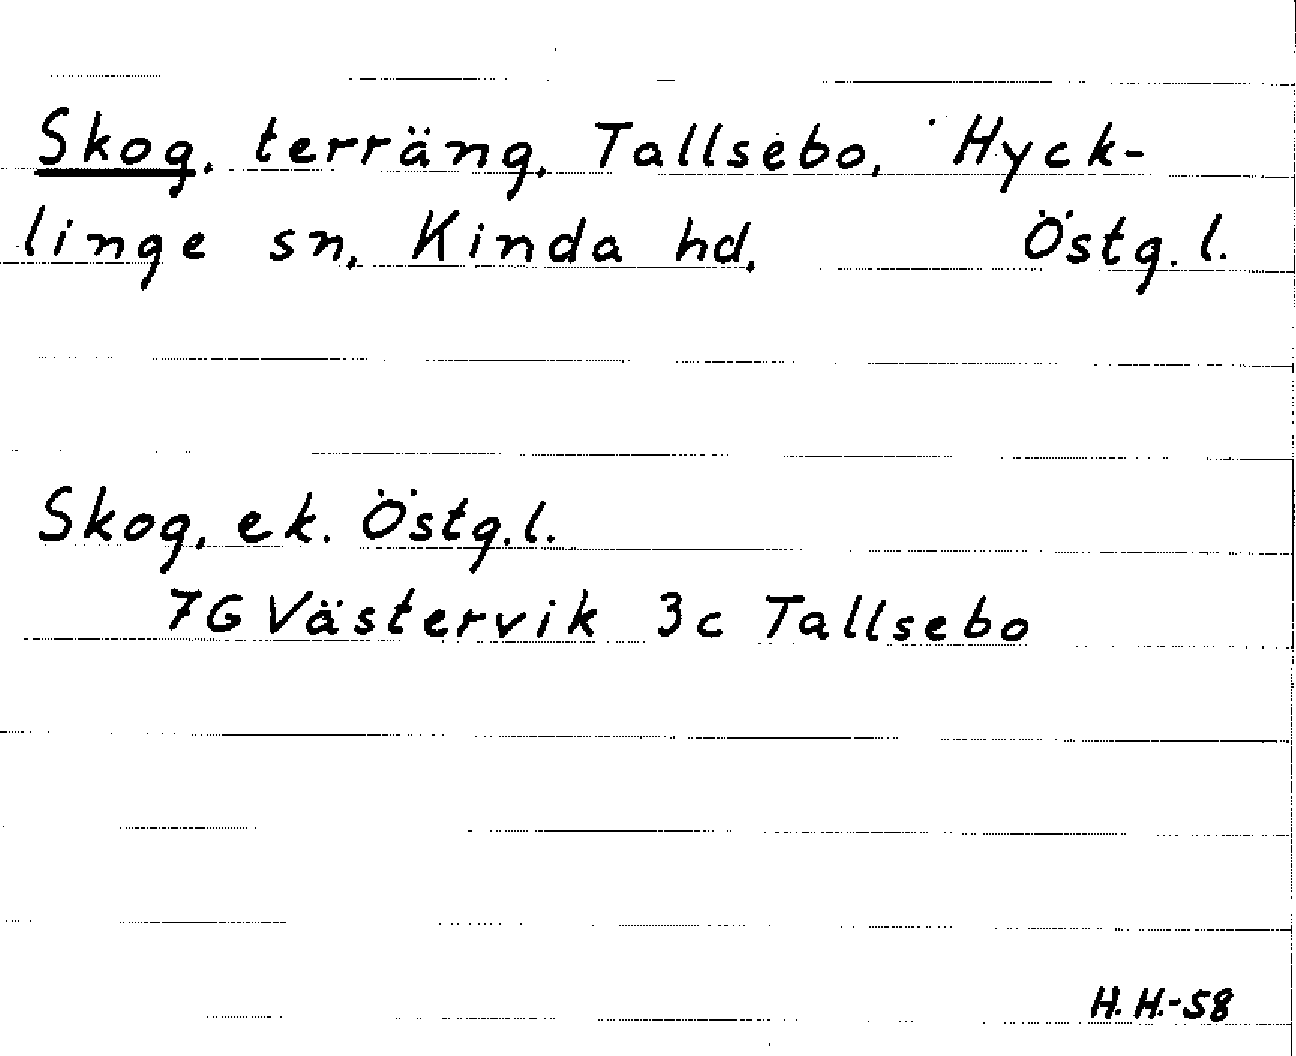 Skog, terräng, Tallsebo, Hyck-
linge sn, Kinda hd, Östg. l.
Skog, ek. Östg. l.
7G Västervik 3c Tallsebo
H. H.-58